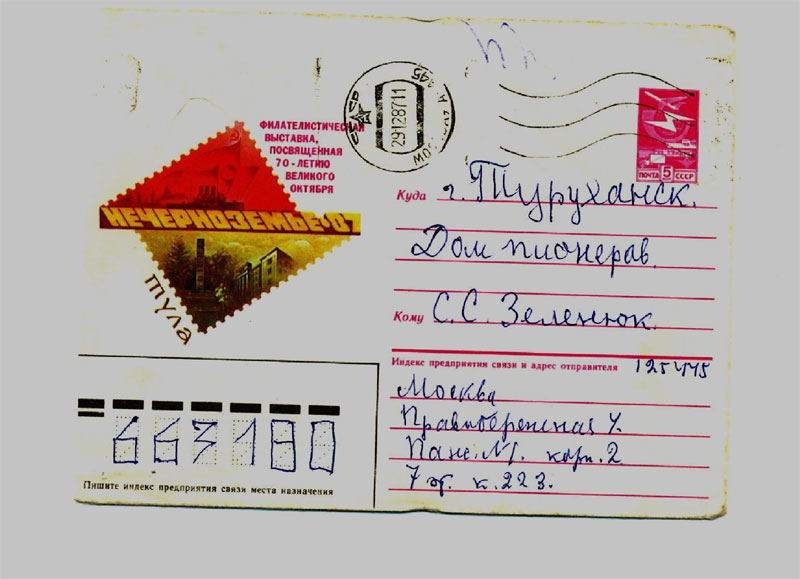 ФИЛАТЕЛИСТИЧЕСКАЯ
ВЫСТАВКА,
ПОСВЯЩЕННАЯ
70-ЛЕТИЮ
ВЕЛИКОГО
ОКТЯБРЯ
НЕЧЕРНОЗЕМЬЕ-87
ТУЛА
СССР
29128711
МОСКВА А-445
ПОЧТА 5 СССР
Куда г. Туруханск.
Дом пионерав.
Кому С.С. Зеленюк.
Индекс предприятия связи и адрес отправителя 125445
Москва
Правобережная
корп. 2
7 эт. к. 223.
663180
Пишите индекс предприятия связи места назначения